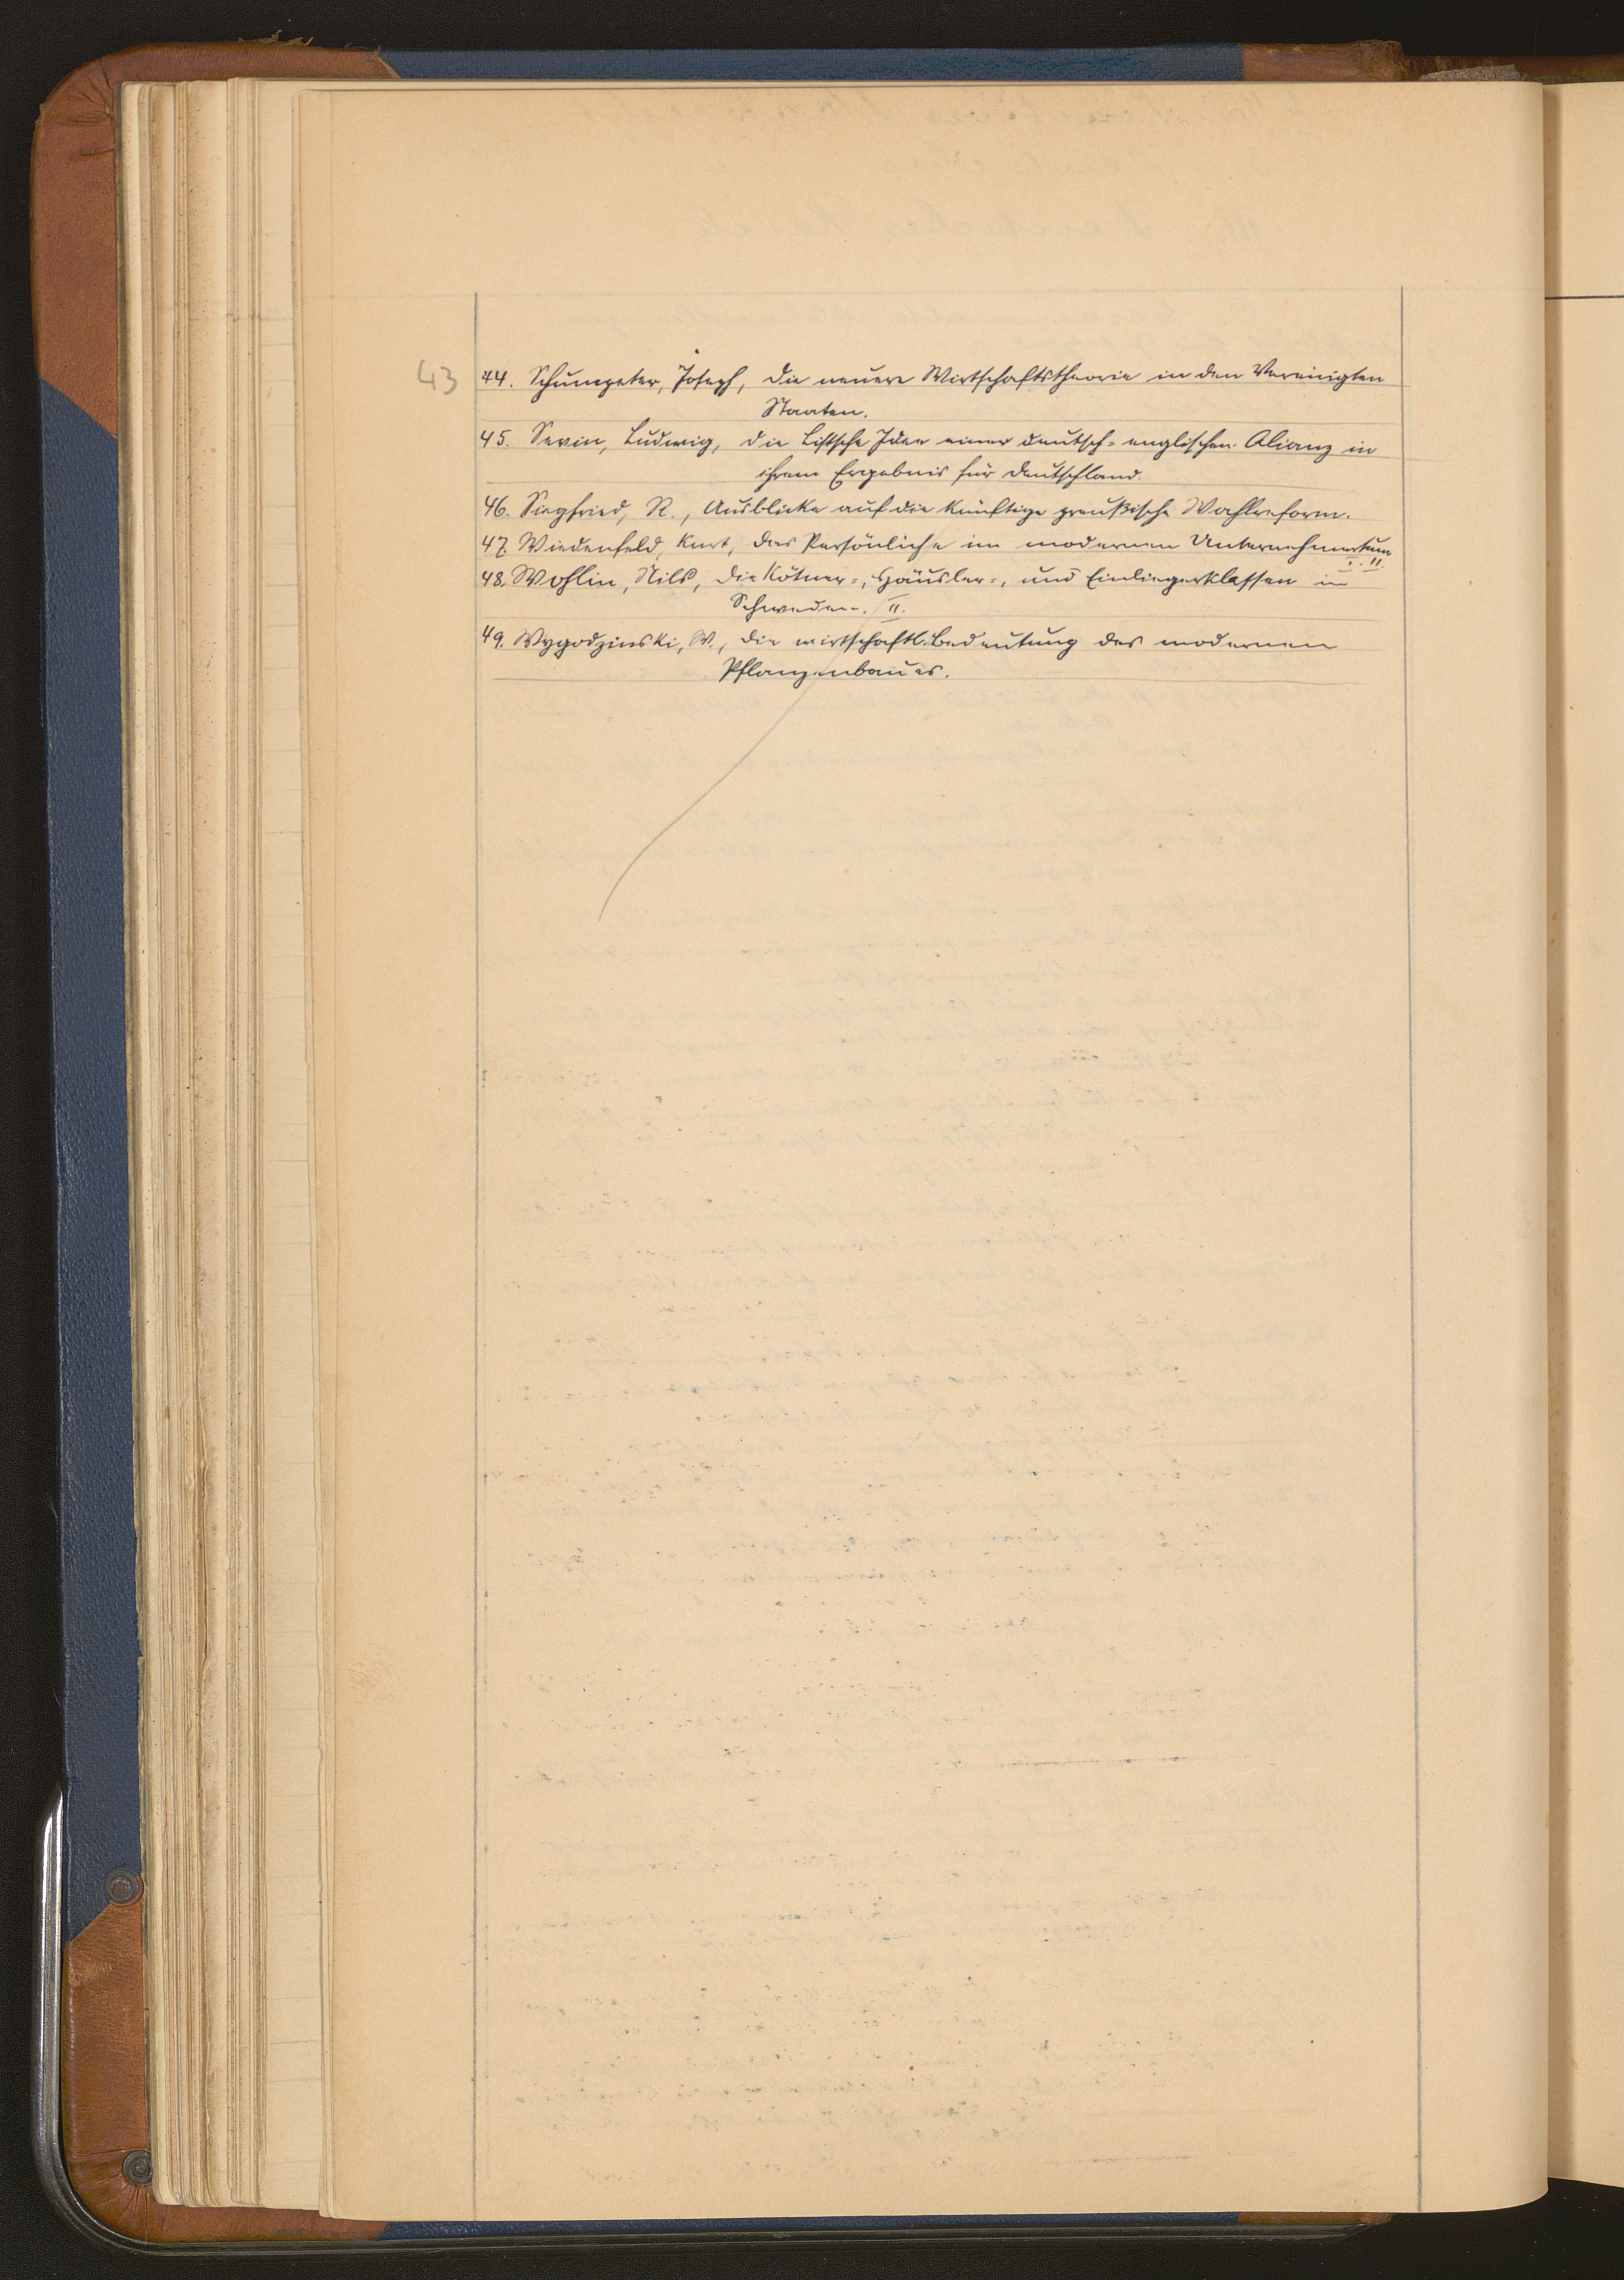 43
44. Schumpeter, Joseph, die neuere Wirtschaftstheorie in den Vereinigten
Staaten.
45. Sevin, Ludwig, die Listsche Idee einer deutsch-englischen Alianz in
ihrem Ergebnis für Deutschland.
46. Siegfried, R., Ausblicke auf die künftige preußische Wahlreform.
47. Wiedenfeld, Kurt, das Persönliche im modernen Unternehmertum
I. II.
48. Wohlin, Nils, die Kötner-, Häusler-, und Einliegerklassen in
Schweden. II.
49. Wygodzinski, W., die wirtschaftl. Bedeutung des modernen
Pflanzenbaues.